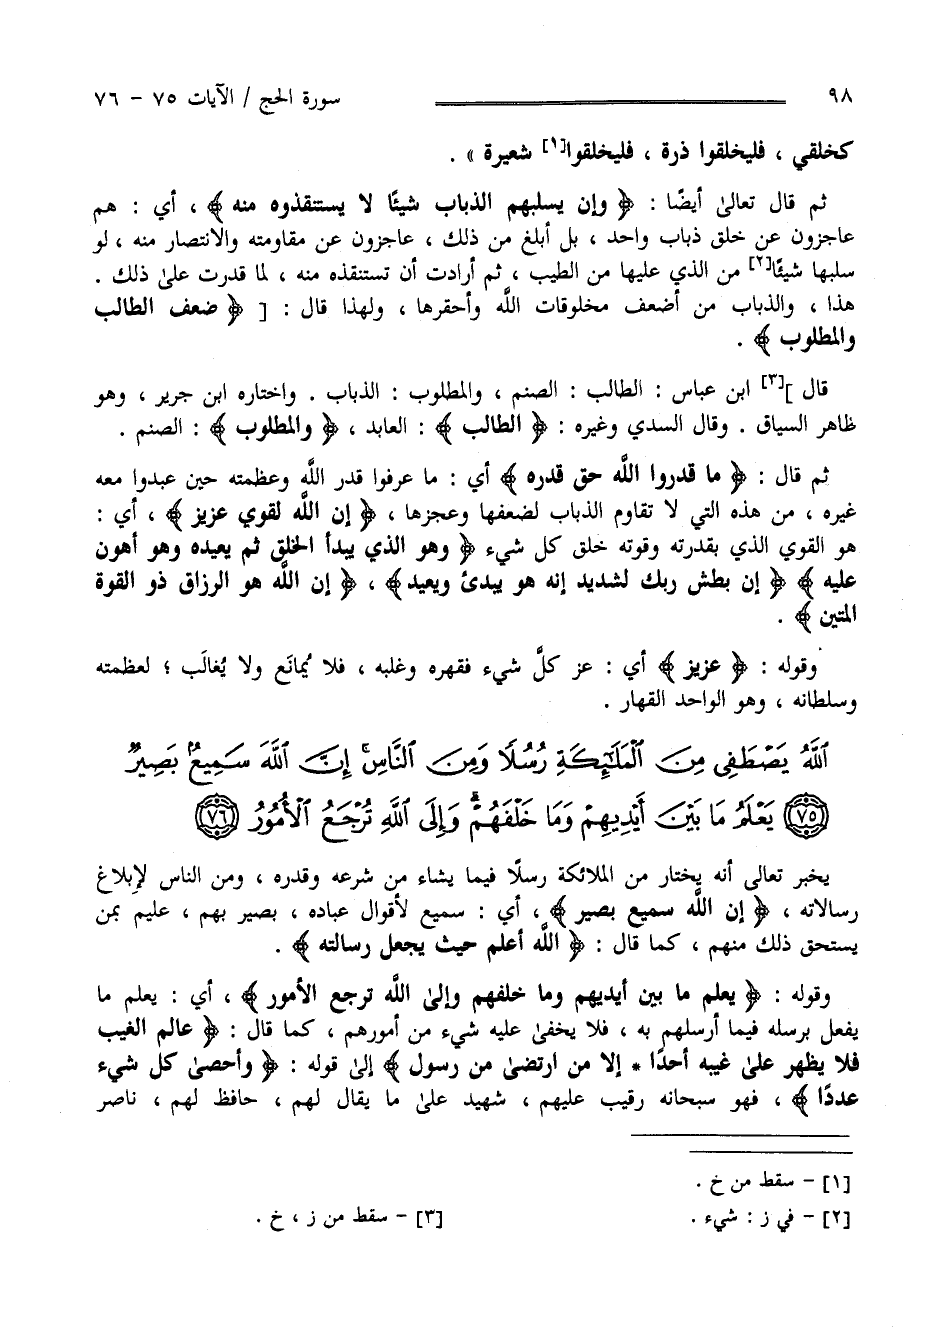 ٩٨ سورة الحج / الآيات ٧٥ – ٧٦
كخلقي ، فليخلقوا ذرة ، فليخلقوا[١] شعيرة » .
ثم قال تعالىٰ أيضًا : ﴿ وإن يسلبهم الذباب شيئًا لا يستنقذوه منه ﴾ ، أي : هم
عاجزون عن خلق ذباب واحد ، بل أبلغ من ذلك ، عاجزون عن مقاومته والانتصار منه ، لو
سلبها شيئًا[٢] من الذي عليها من الطيب ، ثم أرادت أن تستنقذه منه ، لما قدرت علىٰ ذلك .
هذا ، والذباب من أضعف مخلوقات اللَّه وأحقرها ، ولهذا قال : [ ﴿ ضعف الطالب
والمطلوب ﴾ .
قال ][٣] ابن عباس : الطالب : الصنم ، والمطلوب : الذباب . واختاره ابن جرير ، وهو
ظاهر السياق . وقال السدي وغيره : ﴿ الطالب ﴾ : العابد ، ﴿ والمطلوب ﴾ : الصنم .
ثم قال : ﴿ ما قدروا اللَّه حق قدره ﴾ أي : ما عرفوا قدر اللَّه وعظمته حين عبدوا معه
غيره ، من هذه التي لا تقاوم الذباب لضعفها وعجزها ، ﴿ إن اللَّه لقوي عزيز ﴾ ، أي :
هو القوي الذي بقدرته وقوته خلق كل شيء ﴿ وهو الذي يبدأ الخلق ثم يعيده وهو أهون
عليه ﴾ ﴿ إن بطش ربك لشديد إنه هو يبدئ ويعيد ﴾ ، ﴿ إن اللَّه هو الرزاق ذو القوة
المتين ﴾ .
وقوله : ﴿ عزيز ﴾ أي : عز كلَّ شيء فقهره وغلبه ، فلا يُمانَع ولا يُغالَب ؛ لعظمته
وسلطانه ، وهو الواحد القهار .
ٱللَّهُ يَصْطَفِى مِنَ ٱلْمَلَٰٓئِكَةِ رُسُلًا وَمِنَ ٱلنَّاسِ ۚ إِنَّ ٱللَّهَ سَمِيعٌۢ بَصِيرٌ
﴿٧٥﴾ يَعْلَمُ مَا بَيْنَ أَيْدِيهِمْ وَمَا خَلْفَهُمْ ۗ وَإِلَى ٱللَّهِ تُرْجَعُ ٱلْأُمُورُ ﴿٧٦﴾
يخبر تعالى أنه يختار من الملائكة رسلًا فيما يشاء من شرعه وقدره ، ومن الناس لإبلاغ
رسالاته ، ﴿ إن اللَّه سميع بصير ﴾ ، أي : سميع لأقوال عباده ، بصير بهم ، عليم بمن
يستحق ذلك منهم ، كما قال : ﴿ اللَّه أعلم حيث يجعل رسالته ﴾ .
وقوله : ﴿ يعلم ما بين أيديهم وما خلفهم وإلىٰ اللَّه ترجع الأمور ﴾ ، أي : يعلم ما
يفعل برسله فيما أرسلهم به ، فلا يخفىٰ عليه شيء من أمورهم ، كما قال : ﴿ عالم الغيب
فلا يظهر علىٰ غيبه أحدًا * إلا من ارتضىٰ من رسول ﴾ إلىٰ قوله : ﴿ وأحصىٰ كل شيء
عددًا ﴾ ، فهو سبحانه رقيب عليهم ، شهيد علىٰ ما يقال لهم ، حافظ لهم ، ناصر
[١] – سقط من خ .
[٢] – في ز : شيء . [٣] – سقط من ز ، خ .